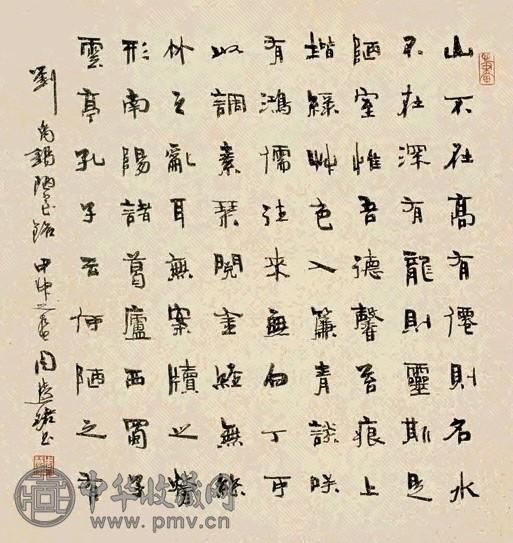 山不在高有僊則名水
不在深有龍則靈斯是
陋室惟吾德馨苔痕上
堦綠艸色入簾青談咲
有鴻儒往来無白丁可
以調素琴閱金經無絲
竹之亂耳無案牘之勞
形南陽諸葛廬西蜀子
雲亭孔子云何陋之有
劉禹錫陋室銘 甲申之 周 書
中华收藏网
www.pmv.cn